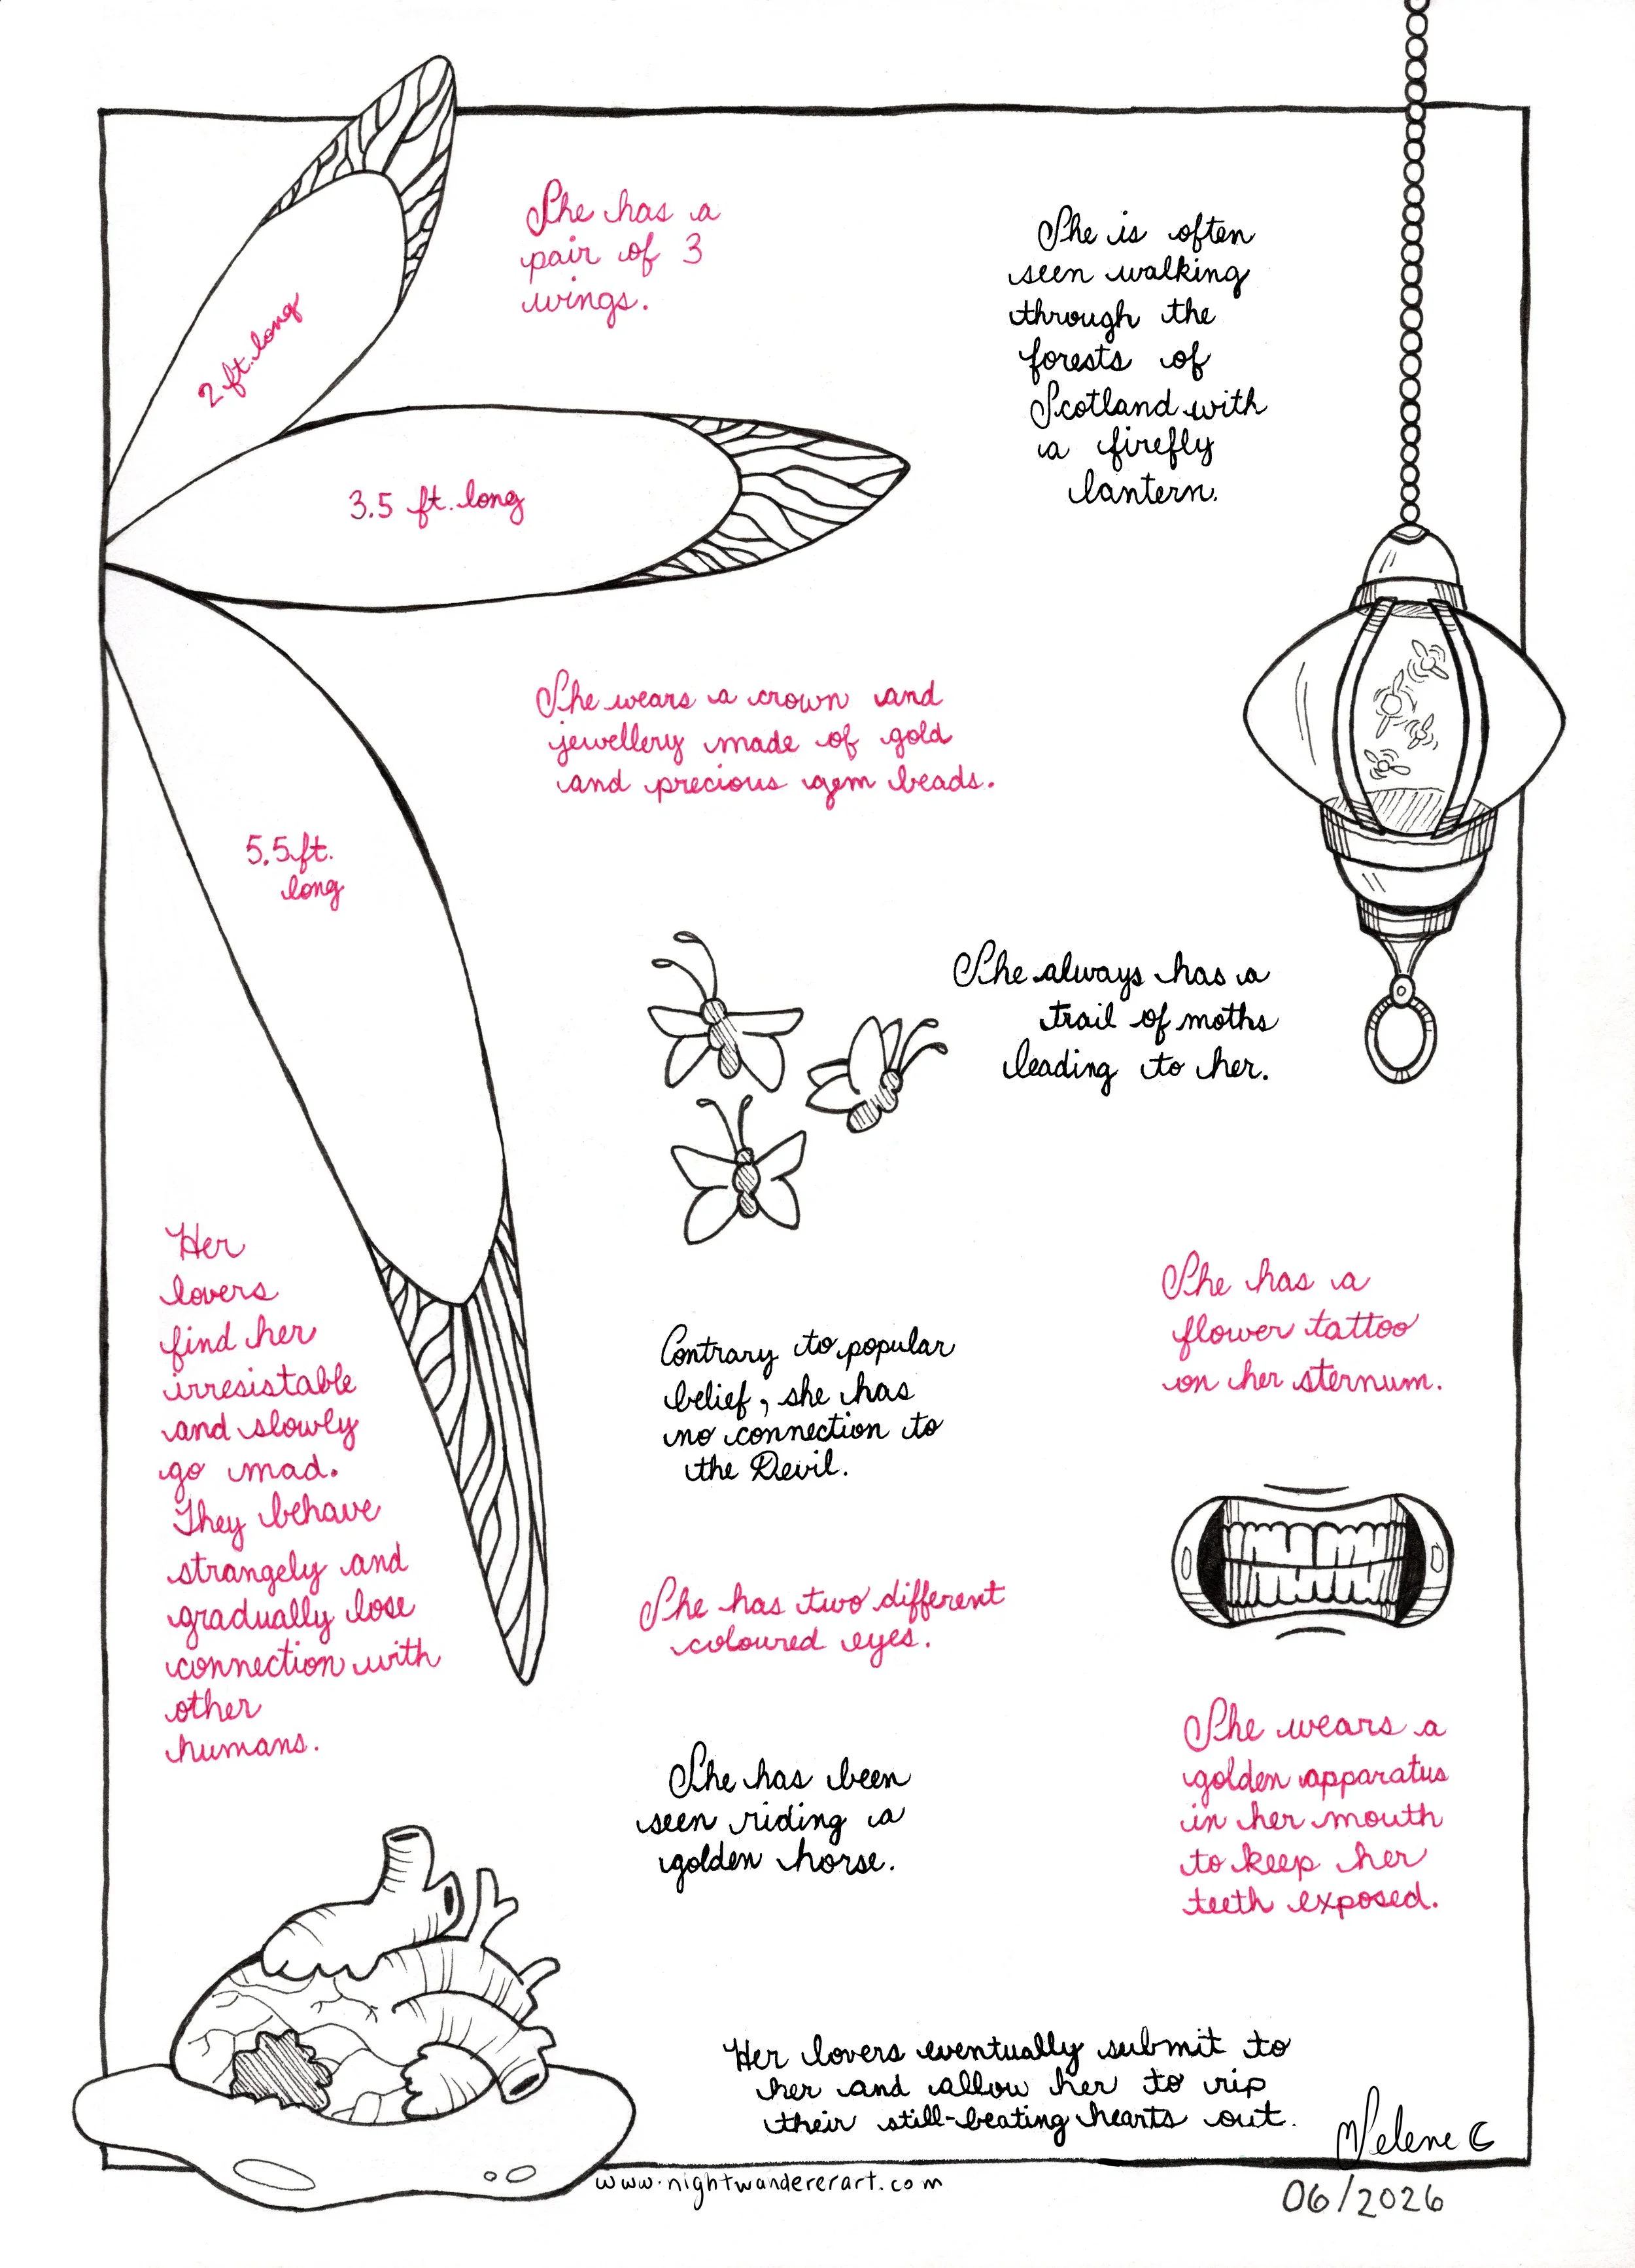 She has a
pair of 3
wings.
She is often
seen walking
through the
forests of
Scotland with
a firefly
lantern.
2 ft. long
3.5 ft. long
She wears a crown and
jewellery made of gold
and precious gem beads.
5.5 ft.
long
She always has a
trail of moths
leading to her.
Her
lovers
find her
irresistable
and slowly
go mad.
They behave
strangely and
gradually lose
connection with
other
humans.
Contrary to popular
belief, she has
no connection to
the Devil.
She has a
flower tattoo
on her sternum.
She has two different
coloured eyes.
She has been
seen riding a
golden horse.
She wears a
golden apparatus
in her mouth
to keep her
teeth exposed.
Her lovers eventually submit to
her and allow her to rip
their still-beating hearts out.
Selene C
www.nightwandererart.com
06/2026